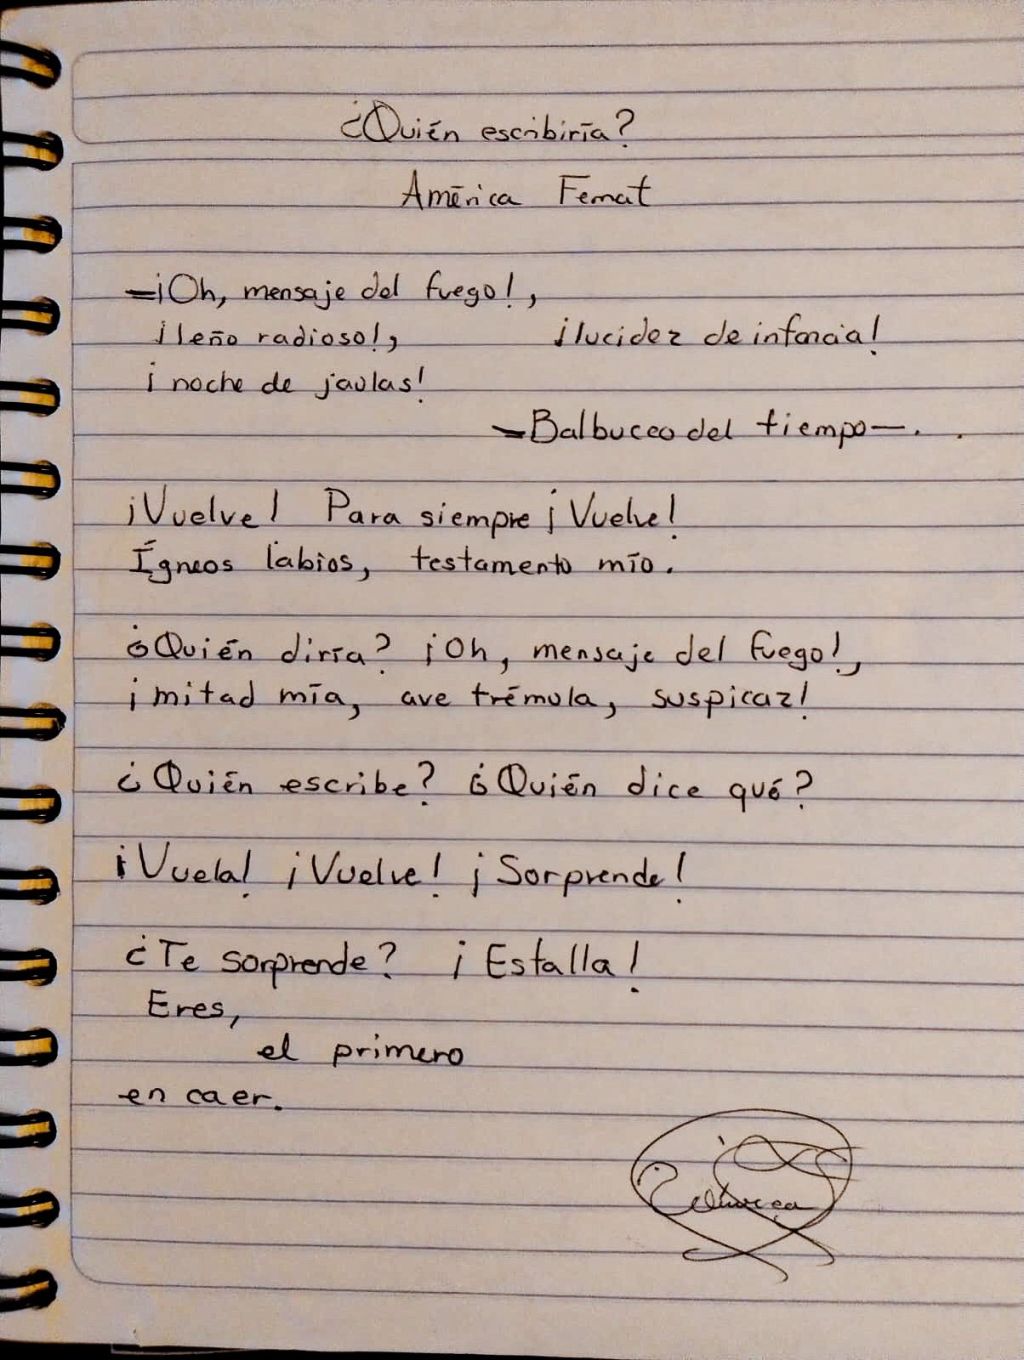 ¿Quién escribiría?
América Femat
—¡Oh, mensaje del fuego!,
¡leño radioso!, ¡lucidez de infancia!
¡noche de jaulas!
—Balbuceo del tiempo—.
¡Vuelve! Para siempre ¡Vuelve!
Ígneos labios, testamento mío.
¿Quién diría? ¡Oh, mensaje del fuego!,
¡mitad mía, ave trémula, suspicaz!
¿Quién escribe? ¿Quién dice qué?
¡Vuela! ¡Vuelve! ¡Sorprende!
¿Te sorprende? ¡Estalla!
Eres,
el primero
en caer.